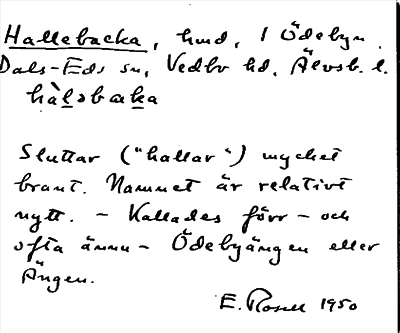 Hallebacka, hmd, i Ödebyn
Dals-Eds sn, Vedbo hd, Älvsb. l.
hàlsbaka
Sluttar ("hallar") mycket
brant. Namnet är relativt
nytt. – Kallades förr – och
ofta ännu – Ödebyängen eller
Ängen.
E. Rosell 1950